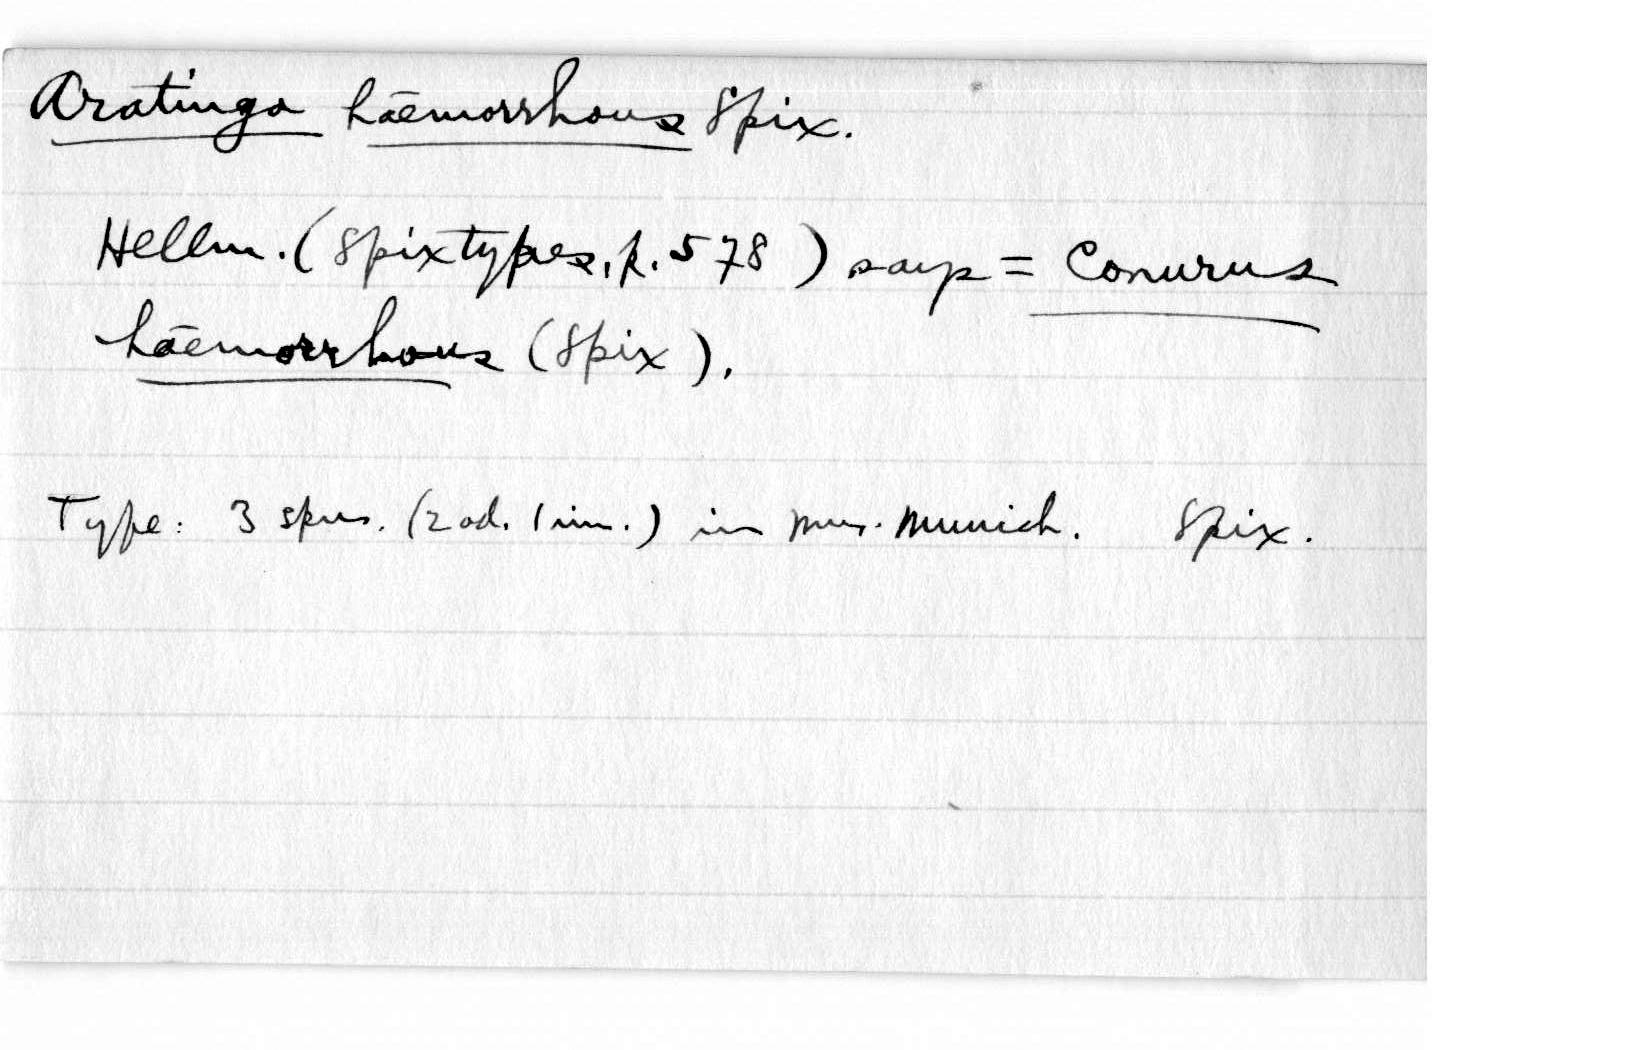 Aratinga hæmorrhous Spix.
Hellm. (Spixtypes, p. 578) says = Conurus
hæmorrhous (Spix).
Type: 3 spms. (2 ad. 1 im.) in Mus. Munich. Spix.